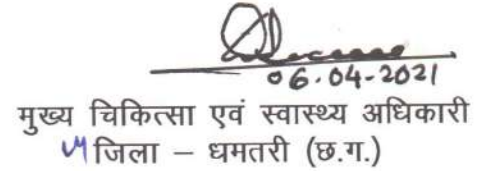 06.04-2021
मुख्य चिकित्सा एवं स्वास्थ्य अधिकारी
जिला – धमतरी (छ.ग.)